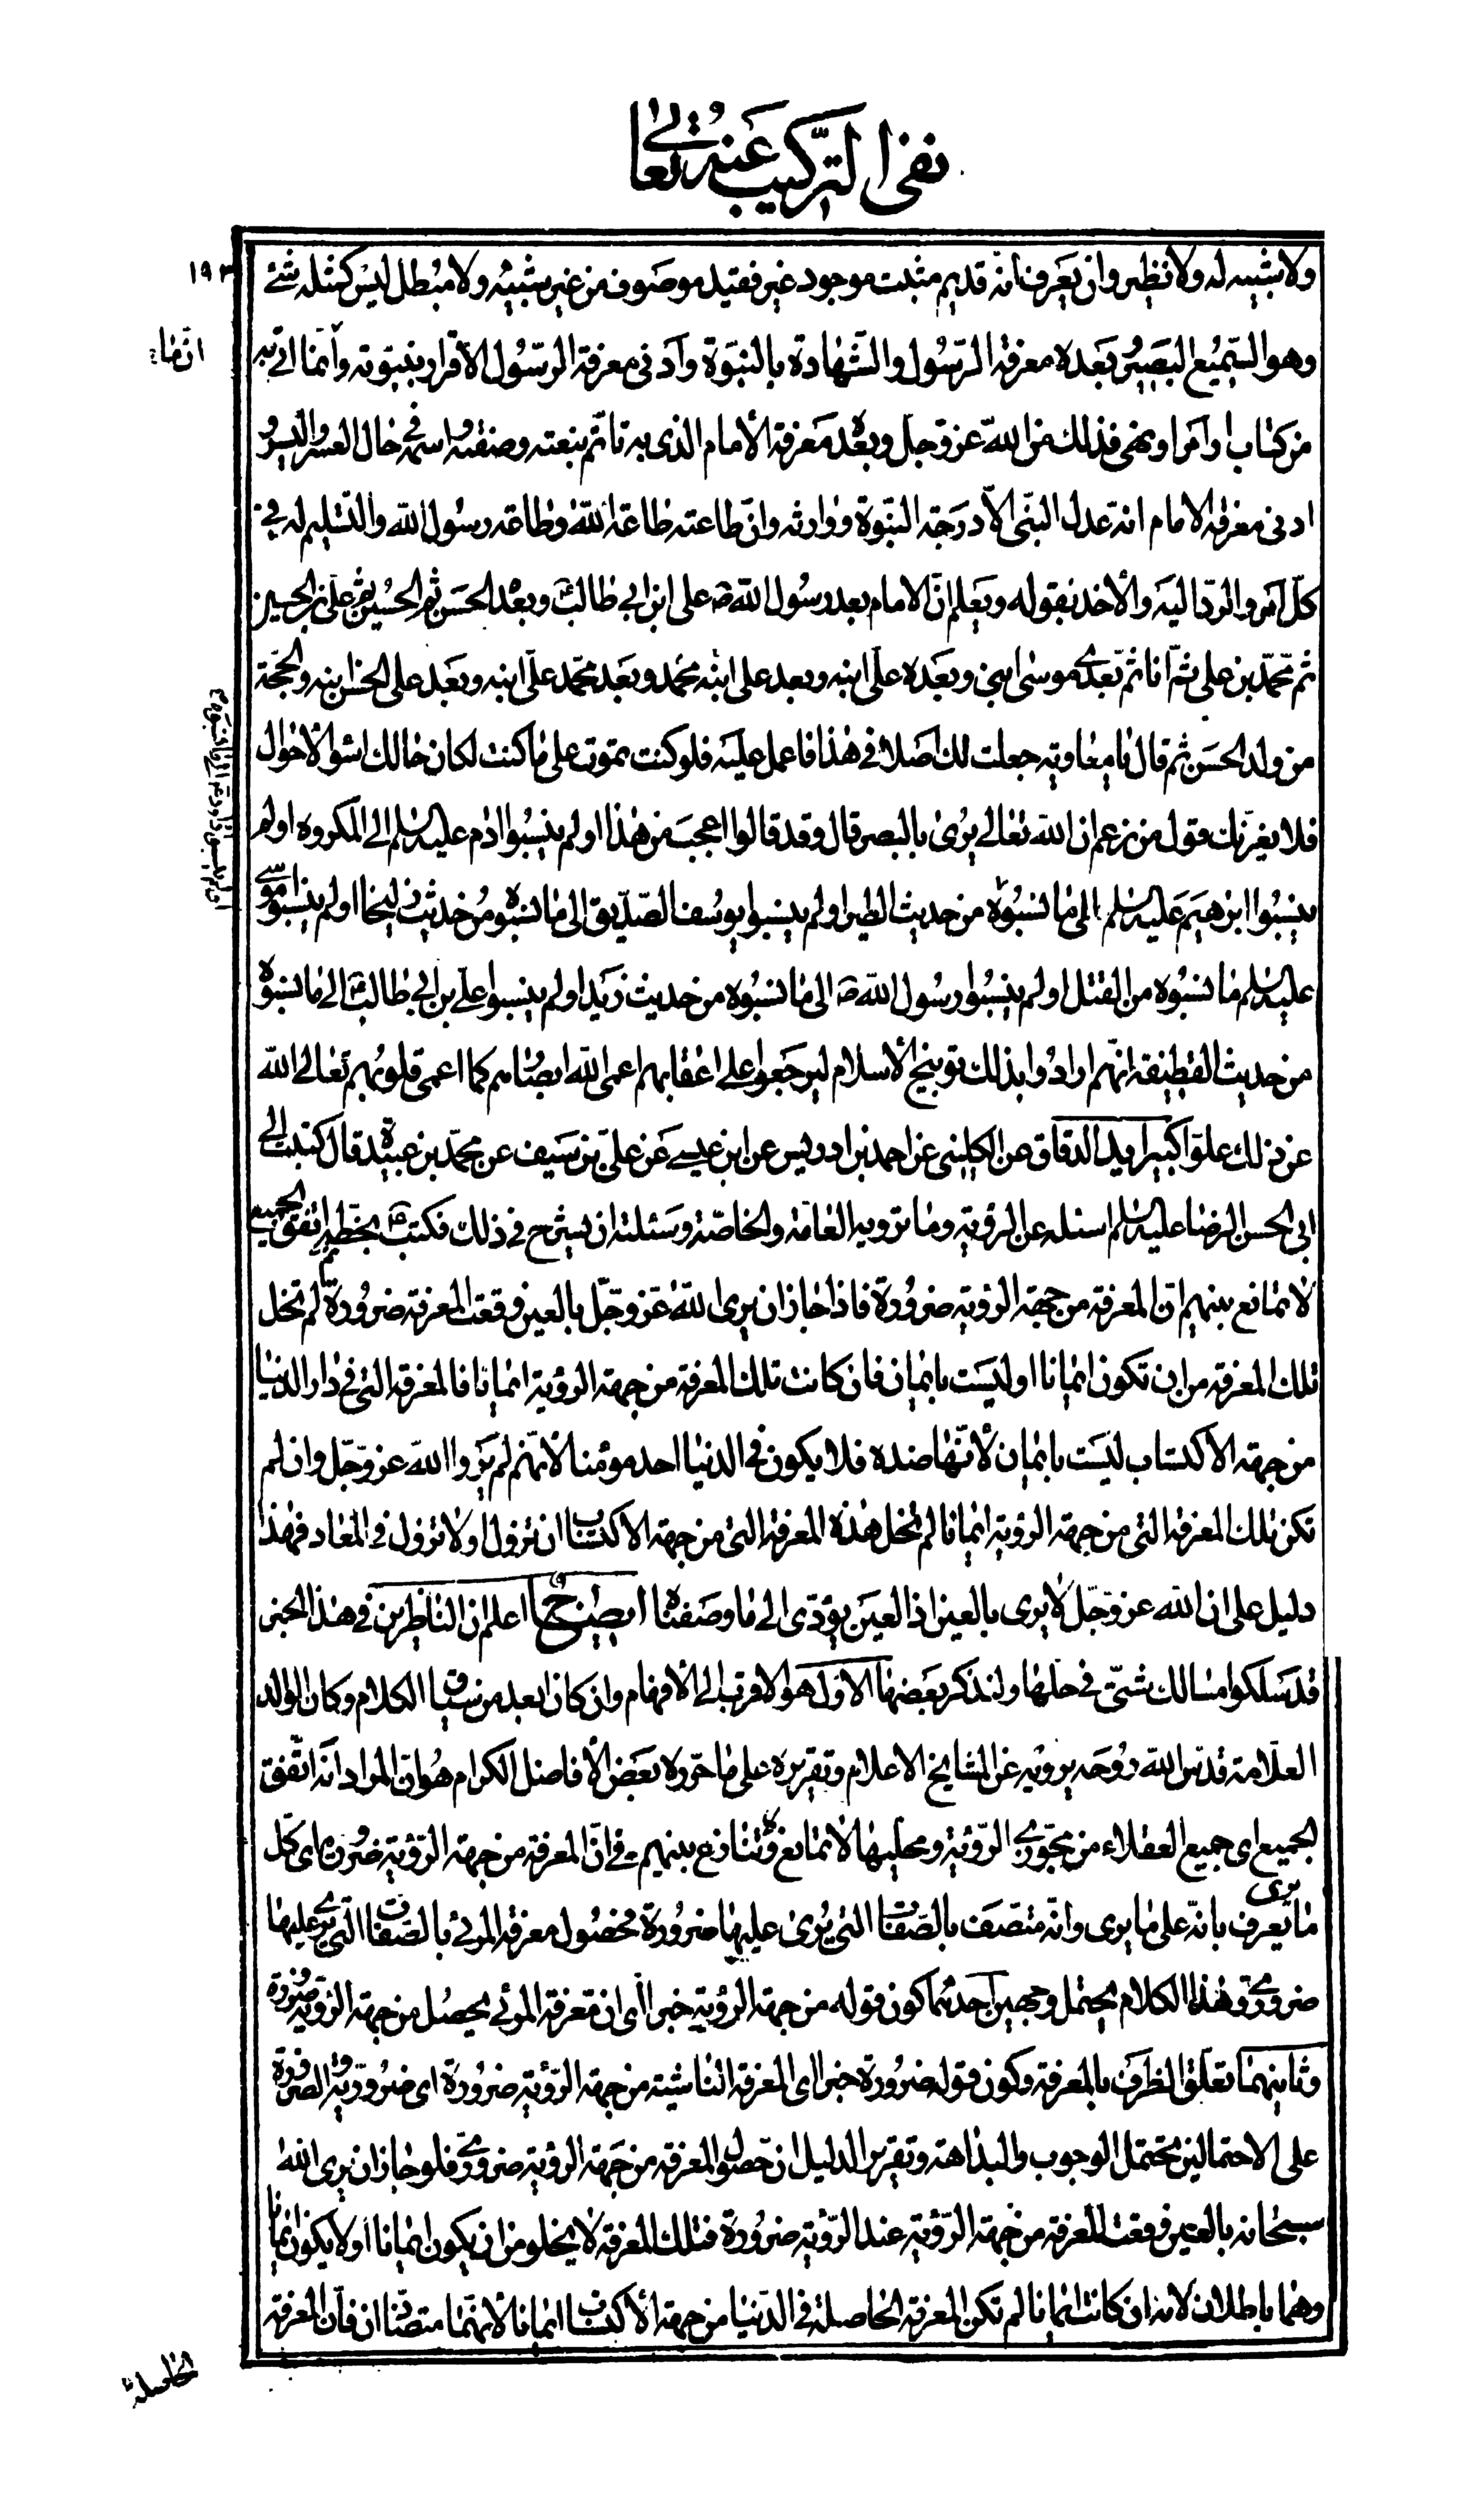 نفى التركيب عنه تعالى
١٩٣
ولا شبيه له ولا نظير وان يعرف انه قديم مثبت موجود غير فقيد موصوف من غير شبيه ولا مبطل ليس كمثله شئ
وهو السميع البصير وبعده معرفة الرسول والشهادة بالنبوة وادنى معرفة الرسول الاقرار بنبوته وان ما اتى به
من كتاب او امر او نهى فذلك من الله عز وجل وبعده معرفة الامام الذى به تاتم بنعته وصفته واسمه فى حال العسر واليسر
ادنى معرفة الامام انه عدل النبى الا درجة النبوة ووارثه وان طاعته طاعة الله وطاعة رسول الله والتسليم له فى
كل امر والرد اليه والاخذ بقوله ويعلم ان الامام بعد رسول الله ص على ابن ابى طالب ع وبعد الحسن ثم الحسين ثم على بن الحسين
ثم محمد بن على ثم انا ثم بعدى موسى ابنى وبعده على ابنه وبعد على ابنه محمد وبعد محمد على ابنه وبعد على الحسن ابنه والحجة
من ولد الحسن ثم قال يا معاوية جعلت لك اصلا فى هذا فاعمل عليه فلو كنت تموت على ما كنت لكان حالك اسوء الاحوال
فلا يغرنك قول من زعم ان الله تعالى يرى بالبصر قال وقد قالوا اعجب من هذا اولم ينسبوا ادم عليه السلم الى المكروه اولم
ينسبوا ابرهيم عليه السلم الى ما نسبوه من حديث الطير اولم ينسبوا يوسف الصديق الى ما نسبوه من حديث زليخا اولم ينسبوا موسى
عليه السلم ما نسبوه من القتل اولم ينسبوا رسول الله ص الى ما نسبوه من حديث زيد اولم ينسبوا على بن ابى طالب ع الى ما نسبوه
من حديث القطيفة انهم ارادوا بذلك توبيخ الاسلام ليرجعوا على اعقابهم اعمى الله ابصارهم كما اعمى قلوبهم تعالى الله
عن ذلك علوا كبيرا يد الدقاق عن الكلينى عن احمد بن ادريس عن ابن عيسى عن على بن سيف عن محمد بن عبيدة قال كتبت الى
ابى الحسن الرضا عليه السلم اسئله عن الرؤية وما ترويه العامة والخاصة وسئلته ان يشرح لى ذلك فكتب ع بخطه اتفق الجميع
لا تمانع بينهم ان المعرفة من جهة الرؤية ضرورة فاذا جاز ان يرى الله عز وجل بالعين وقعت المعرفة ضرورة ثم لم تخل
تلك المعرفة من ان تكون ايمانا او ليست بايمان فان كانت تلك المعرفة من جهة الرؤية ايمانا فالمعرفة التى فى دار الدنيا
من جهة الاكتساب ليست بايمان لانها ضده فلا يكون فى الدنيا احد مؤمنا لانهم لم يروا الله عز وجل وان لم
تكن تلك المعرفة التى من جهة الرؤية ايمانا لم تخل هذه المعرفة التى من جهة الاكتساب ان تزول او لا تزول فى المعاد فهذا
دليل على ان الله عز وجل لا يرى بالعين اذ العين يؤدى الى ما وصفناه ايضاح اعلم ان الناظرين فى هذا الخبر
قد سلكوا مسالك شتى فى حلها ولنذكر بعضها الاول هو الاقرب الى الافهام وان كان ابعد من سياق الكلام وكان الوالد
العلامة قدس الله روحه يرويه عن المشايخ الاعلام وتقريره على ما حرره بعض الافاضل الكرام هو ان المراد انه اتفق
الجميع اى جميع العقلاء من مجوزى الرؤية ومحيليها لا تمانع ولا تنازع بينهم فى ان المعرفة من جهة الرؤية ضرورة اى كل
ما يرى يعرف بانه على ما يرى وانه متصف بالصفات التى يرى عليها ضرورة فحصول معرفة المرئى بالصفات التى يرى عليها
ضرورى وهذا الكلام يحتمل وجهين احدهما كون قوله من جهة الرؤية خبرا اى ان معرفة المرئى يحصل من جهة الرؤية ضرورة
وثانيهما تعلق الظرف بالمعرفة وكون قوله ضرورة خبرا اى المعرفة الناشية من جهة الرؤية ضرورة اى ضرورية والضرورة
على الاحتمالين يحتمل الوجوب والبداهة وتقرير الدليل ان حصول المعرفة من جهة الرؤية ضرورى فلو جاز ان يرى الله
سبحانه بالعين وقعت المعرفة من جهة الرؤية عند الرؤية ضرورة فتلك المعرفة لا يخلو من ان يكون ايمانا او لا يكون ايمانا
وهما باطلان لانه ان كانت ايمانا لم تكن المعرفة الحاصلة فى الدنيا من جهة الاكتساب ايمانا لانهما متضادان فان المعرفة
الحاصلة